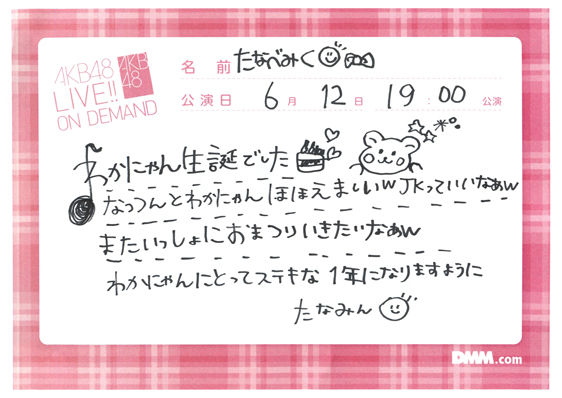 AKB48
LIVE!!
ON DEMAND
AKB
48
名 前 たなべみく
公演日 6月 12日 19:00 公演
わかにゃん生誕でした
なっつんとわかにゃんほほえましいw JKっていいなぁw
またいっしょにおまつりいきたいなぁw
わかにゃんにとってステキな1年になりますように
たなみん
DMM.com